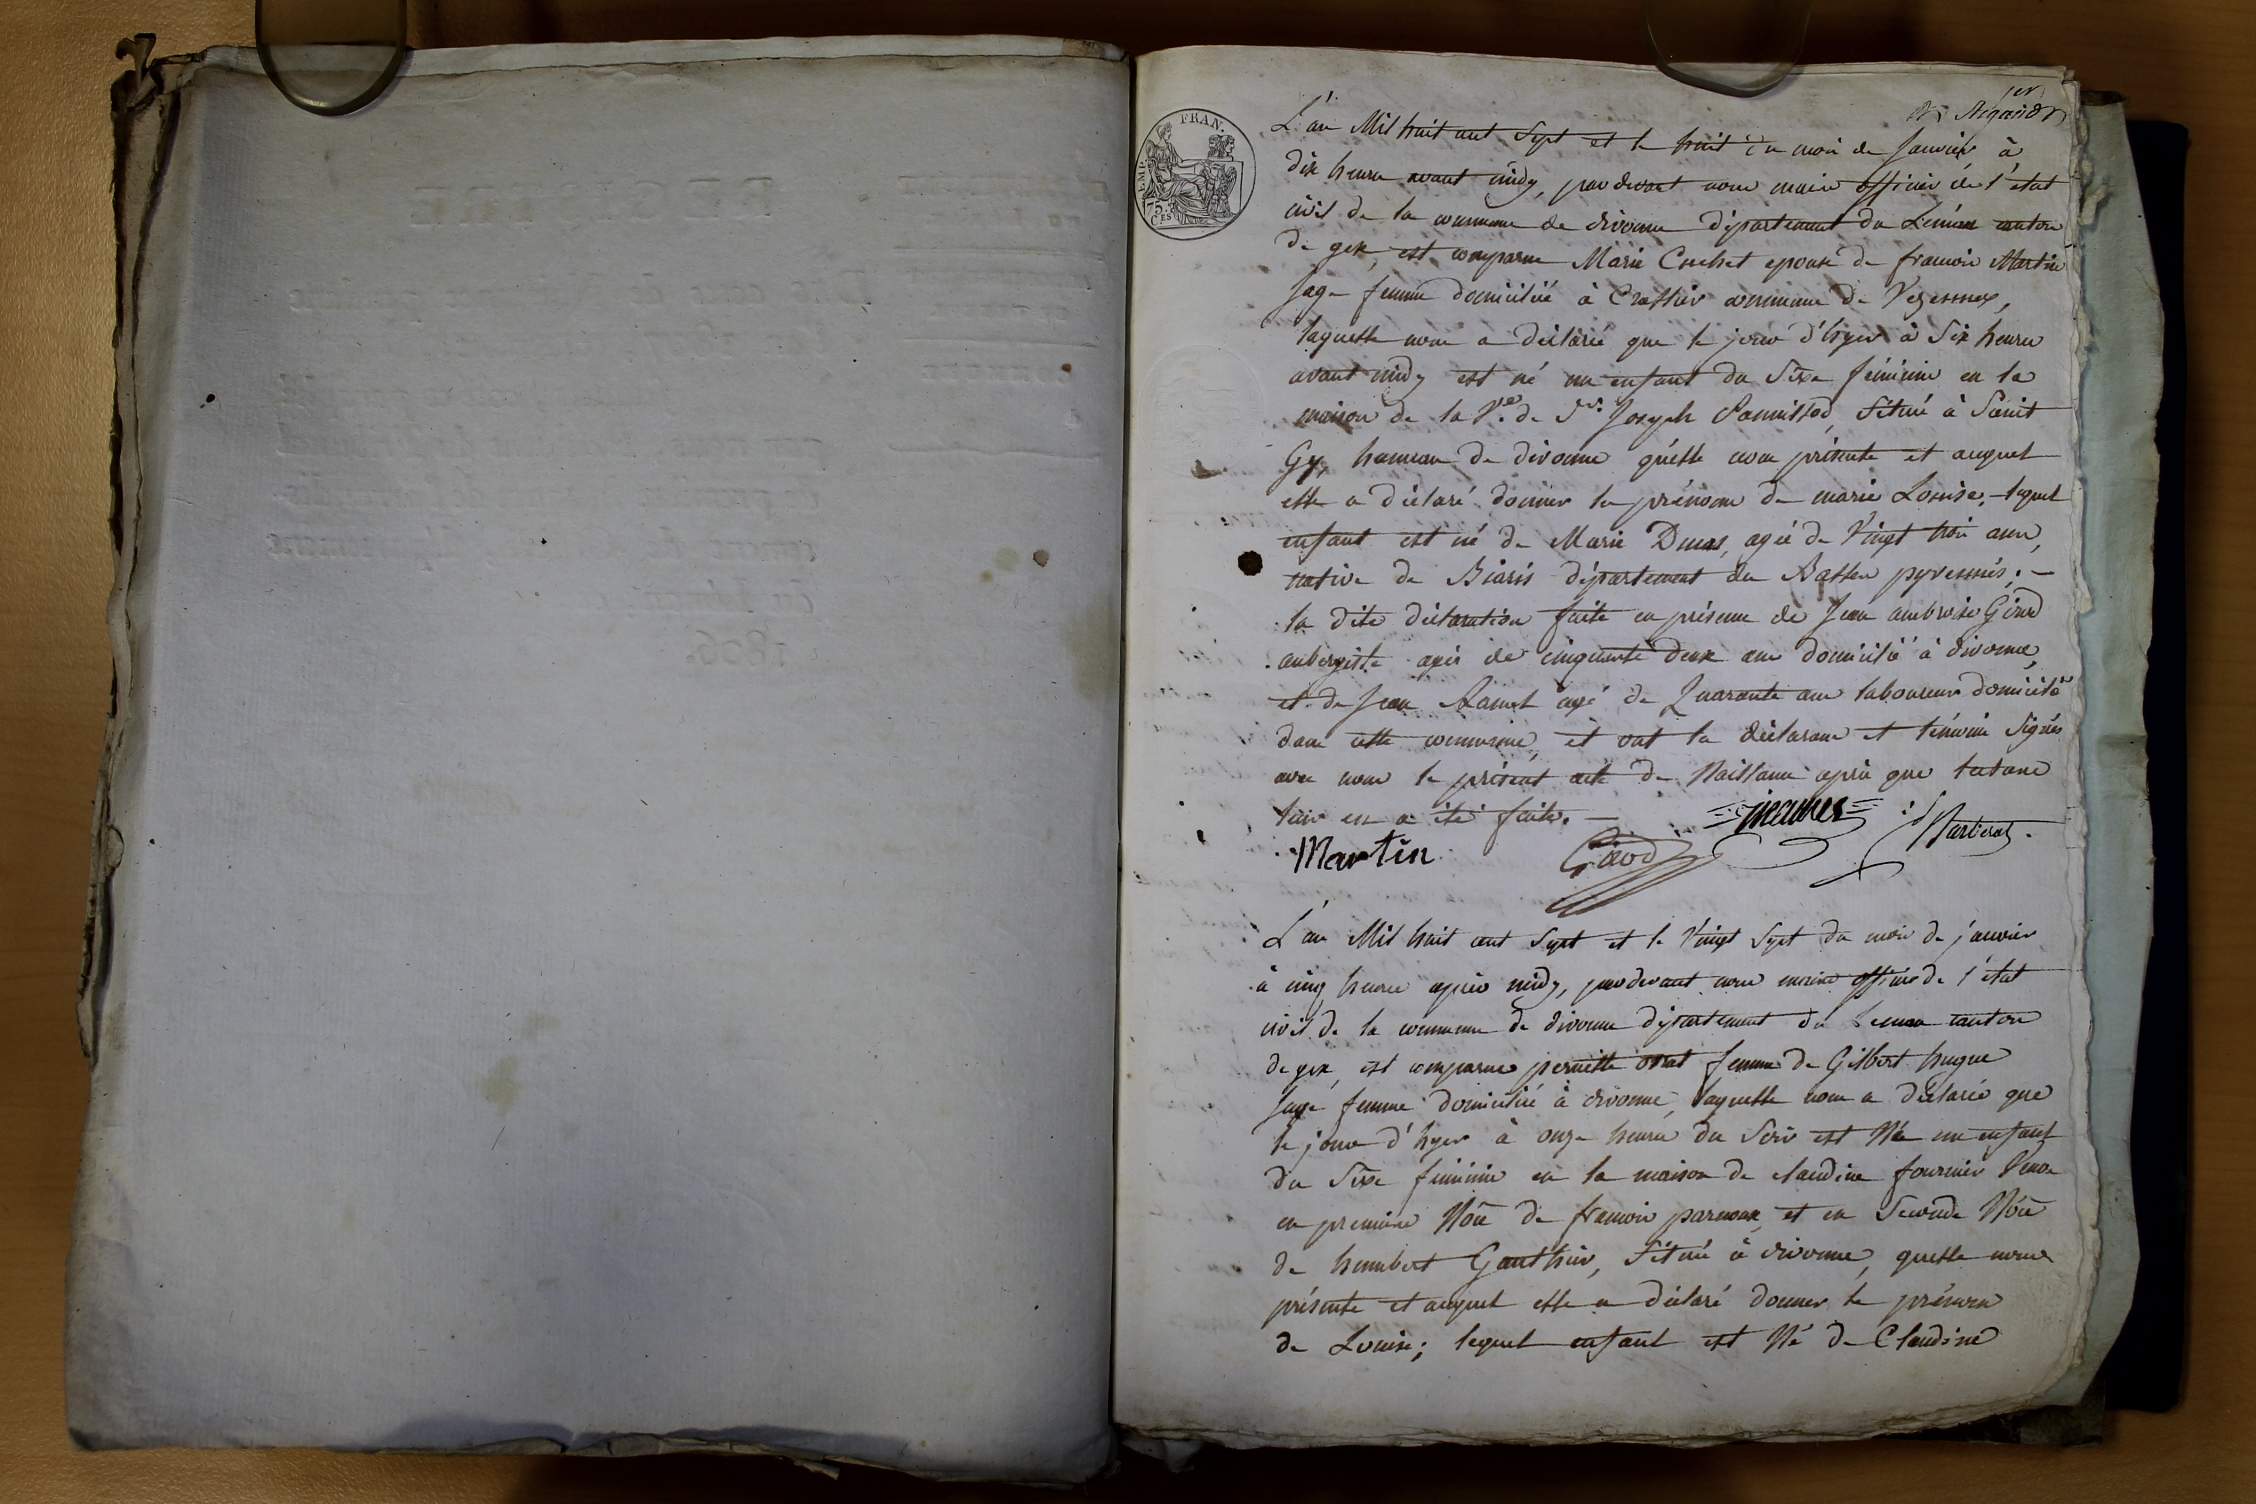 1er
EMP. FRAN.
75. CES
L'an Mil huit cent Sept et le huit du mois de Janvier à
dix heures avant midy, pardevant nous maire officier de l'état
civil de la commune de divonne département du Leman canton
de gex, est comparue Marie Crochet epouse de francois Martin
Sage femme domiciliée à Crassier commune de Vezenex,
laquelle nous a déclaré que le jour d'hyer à Six heures
avant midy est né un enfant du Sexe féminin en la
maison de la Ve. de Sr. Joseph Pannissod, Située à Saint
Gy, hameau de divonne qu'elle nous présente et auquel
elle a déclaré donner le prénom de marie Louise, lequel
enfant est né de Marie Ducas, agée de Vingt trois ans,
native de Biaris département des Basses pyrennées. —
la dite déclaration faite en présence de Jean ambroise Girod
aubergiste agés de cinquante deux ans domicilié à divonne,
et de Jean Ramel agé de Quarante ans laboureur domicilié
dans cette commune, et ont la déclarante et témoins Signés
avec nous le présent acte de Naissance après que lecture
leur en a été faite. —
Martin Girod
L'an Mil huit cent Sept et le Vingt Sept du mois de janvier
à cinq heures après midy, pardevant nous maire officier de l'état
civil de la commune de divonne département du Leman canton
de gex, est comparue pernette femme de Gilbert hugue
Sage femme domiciliée à divonne, laquelle nous a déclaré que
le jour d'hyer à onze heures du Soir est Né un enfant
du Sexe féminin en la maison de claudine fournier Veuve
en première Nôce de francois parnoux, et en Seconde Nôce
de humbert Gauthier, Située à divonne, quelle nous
présente et auquel elle a déclaré donner le prénom
de Louise; lequel enfant est Né de Claudine